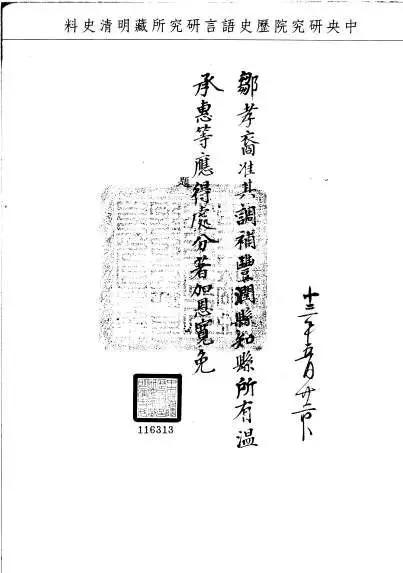 中央研究院歷史語言研究所藏明清史料
十三年五月廿六日
鄒孝裔准其調補豐潤縣知縣所有溫
承惠等應得處分著加恩寬免
題
116313